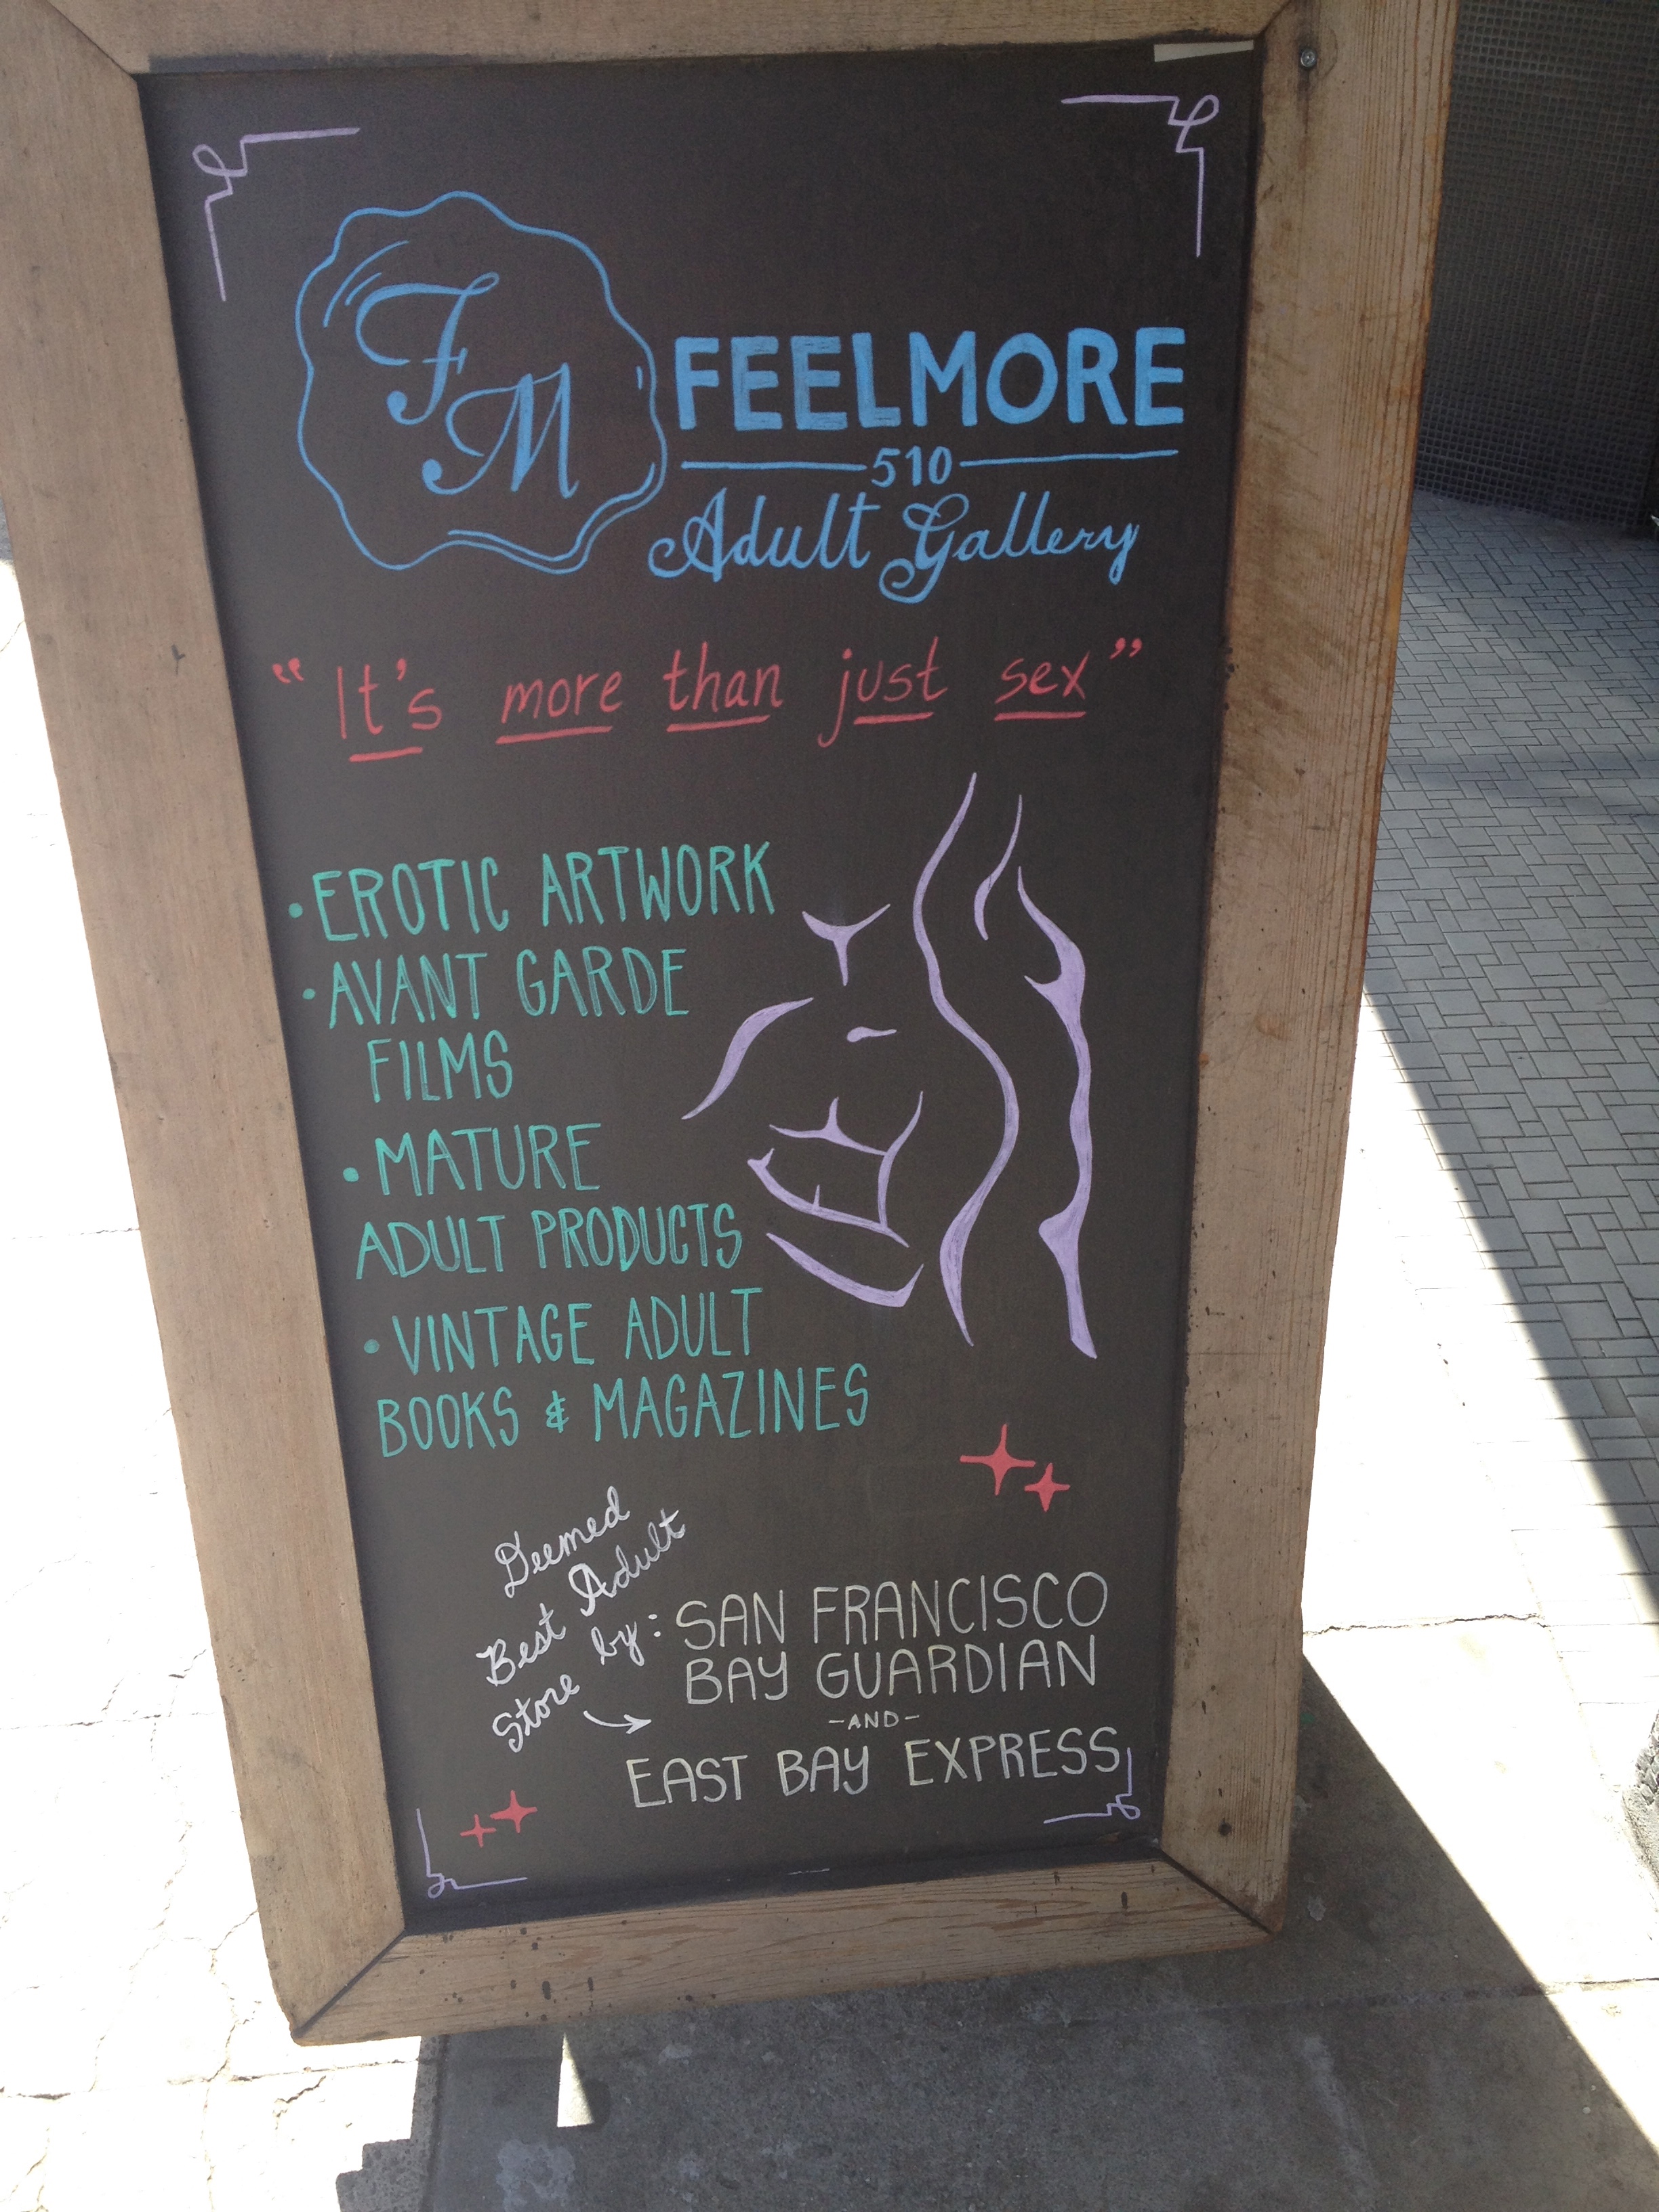 FM
FEELMORE
510
Adult Gallery
"It's more than just sex"
• EROTIC ARTWORK
• AVANT GARDE
FILMS
• MATURE
ADULT PRODUCTS
• VINTAGE ADULT
BOOKS & MAGAZINES
Deemed
Best Adult
Store by:
SAN FRANCISCO
BAY GUARDIAN
-AND-
EAST BAY EXPRESS